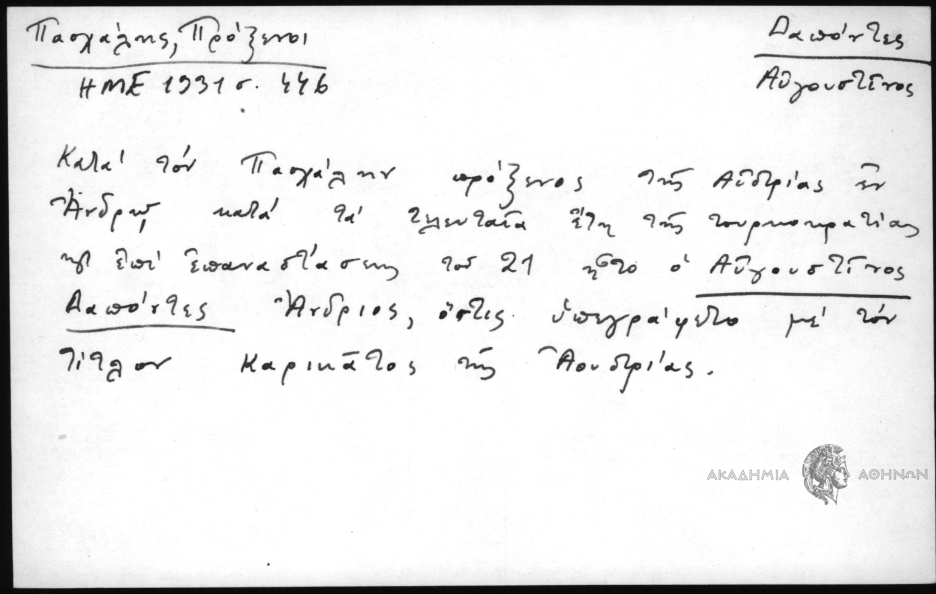 Πασχάλης, Πρόξενοι
ΗΜΕ 1931 σ. 446
Δαπόντες
Αὐγουστῖνος
Κατά τόν Πασχάλην πρόξενος τῆς Αὐστρίας ἐν
Ἄνδρῳ κατά τά τελευταῖα ἔτη τῆς τουρκοκρατίας
κ ἐπί ἐπαναστάσεως τοῦ 21 ἦτο ὁ Αὐγουστῖνος
Δαπόντες Ἄνδριος, ὅστις ὑπεγράφετο μέ τόν
τίτλον Καρικᾶτος τῆς Ἀουστρίας.
ΑΚΑΔΗΜΙΑ ΑΘΗΝΩΝ